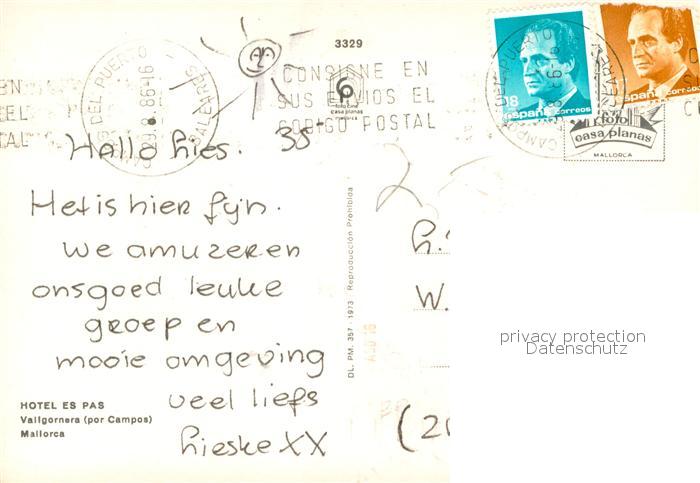 3329
CONSIGNE EN
SUS ENVIOS EL
CODIGO POSTAL
foto cine
casa planas
mallorca
DEL PUERTO
BALEARES
España correos
España correos
foto
casa planas
MALLORCA
Hallo Lies. 35°
Het is hier fijn.
We amuzeren
onsgoed leuke
groep en
mooie omgeving
veel liefs
Lieske XX
HOTEL ES PAS
Vallgornera (por Campos)
Mallorca
DL. PM. 357 - 1973 - Reproducción Prohibida
L.
W.
(20
privacy protection
Datenschutz